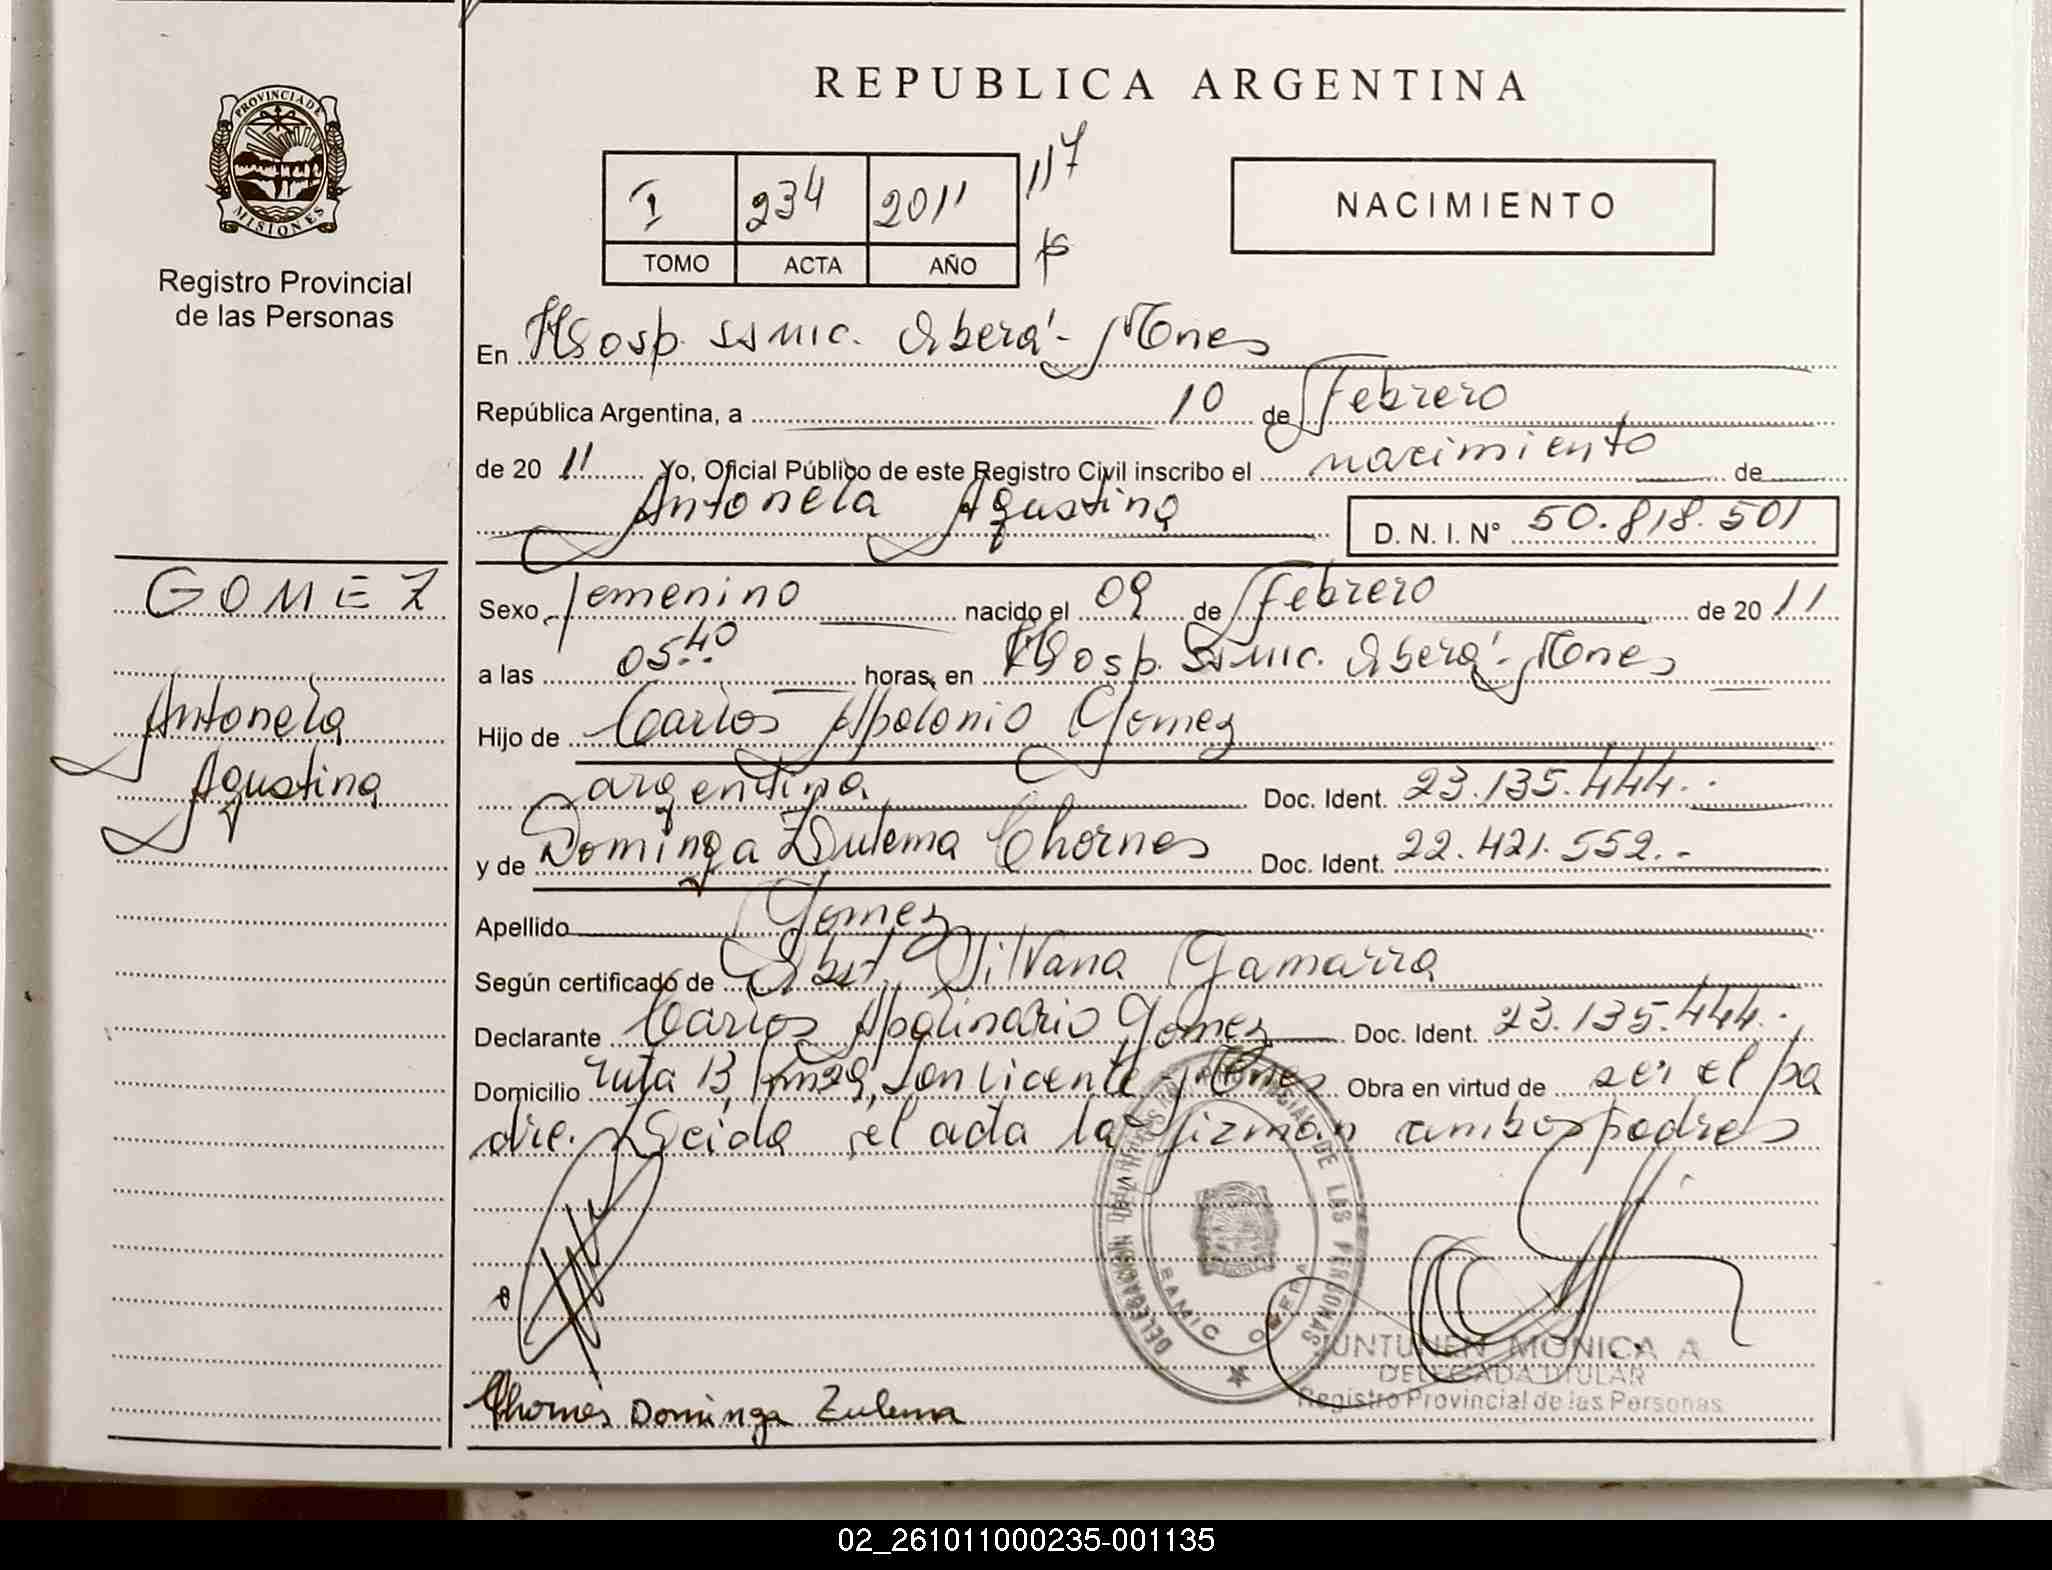 REPUBLICA ARGENTINA
PROVINCIA DE
MISIONES
Registro Provincial
de las Personas
I 234 2011 117
TOMO ACTA AÑO
NACIMIENTO
En Hosp. SSMIC. Oberá - Mnes
República Argentina, a 10 de Febrero
de 2011 Yo, Oficial Público de este Registro Civil inscribo el nacimiento de
Antonela Agustina D. N. I. N° 50.818.501
GOMEZ
Antonela
Agustina
Sexo femenino nacido el 09 de Febrero de 2011
a las 05:40 horas, en Hosp. SSMIC. Oberá - Mnes
Hijo de Carlos Apolonio Gomez
argentina Doc. Ident. 23.135.444.-
y de Dominga Zulema Chornes Doc. Ident. 22.421.552.-
Apellido Gomez
Según certificado de Obst. Silvana Gamarra
Declarante Carlos Apolinario Gomez Doc. Ident. 23.135.444.-
Domicilio ruta 13, km 29, San Vicente, Mnes Obra en virtud de ser el pa
dre. Leida el acta la firman ambos padres
DELEGACION
PROVINCIAL DE LAS PERSONAS
SAMIC OBERA
JUNTUNEN MONICA A.
DELEGADA TITULAR
Registro Provincial de las Personas
Chornes Dominga Zulema
02_261011000235-001135